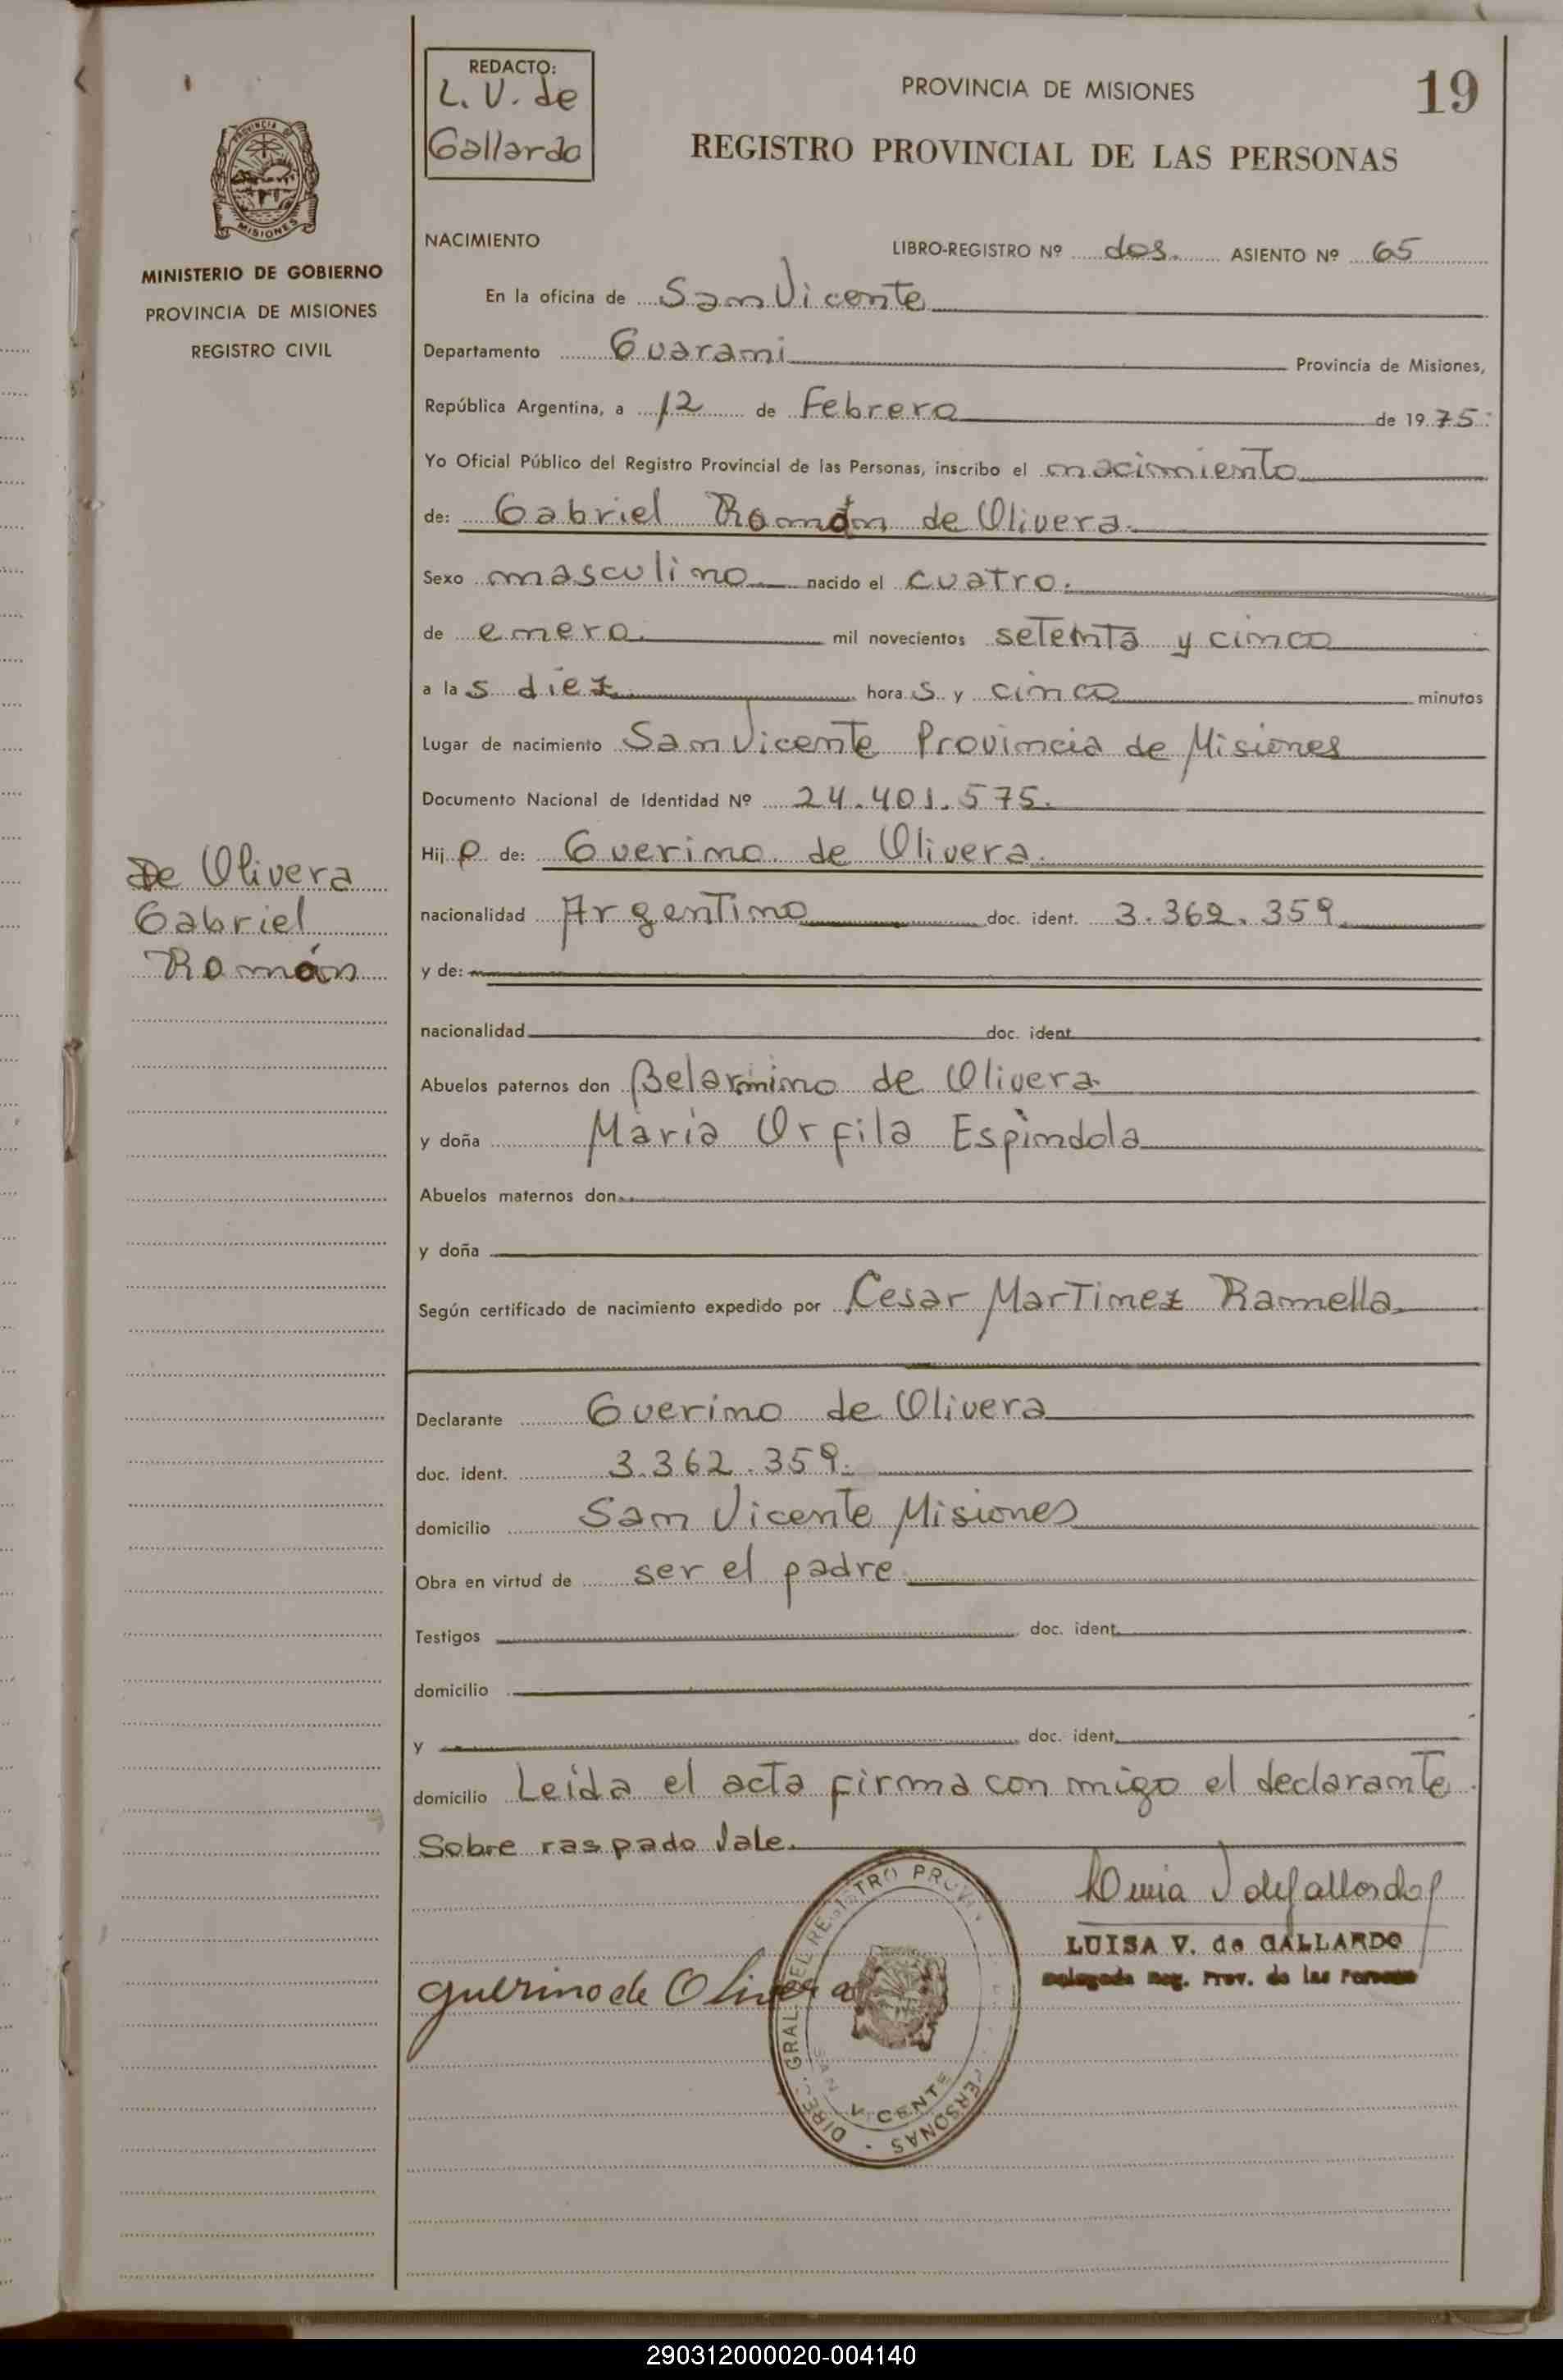 REDACTO:
L. V. de
Gallardo
PROVINCIA DE MISIONES
19
REGISTRO PROVINCIAL DE LAS PERSONAS
PROVINCIA DE
MISIONES
MINISTERIO DE GOBIERNO
PROVINCIA DE MISIONES
REGISTRO CIVIL
NACIMIENTO
LIBRO-REGISTRO Nº dos. ASIENTO Nº 65
En la oficina de San Vicente
Departamento Guarani Provincia de Misiones,
República Argentina, a 12 de Febrero de 1975.
Yo Oficial Público del Registro Provincial de las Personas, inscribo el nacimiento
de: Gabriel Román de Olivera.
Sexo masculino nacido el cuatro.
de enero. mil novecientos setenta y cinco
a las diez hora s y cinco minutos
Lugar de nacimiento San Vicente Provincia de Misiones
Documento Nacional de Identidad Nº 24.401.575.
De Olivera
Gabriel
Román
Hijo de: Guerino de Olivera.
nacionalidad Argentino doc. ident. 3.362.359.
y de:
nacionalidad doc. ident.
Abuelos paternos don Belarmino de Olivera
y doña María Orfila Espindola
Abuelos maternos don
y doña
Según certificado de nacimiento expedido por Cesar Martinez Ramella
Declarante Guerino de Olivera
doc. ident. 3.362.359.
domicilio San Vicente Misiones
Obra en virtud de ser el padre
Testigos doc. ident.
domicilio
y doc. ident.
domicilio Leída el acta firma con migo el declarante.
Sobre raspado Vale.
LUISA V. de GALLARDO
Delegada Reg. Prov. de las Personas
guerino de Olivera
DIREC. GRAL. DEL REGISTRO PROV. PERSONAS
SAN VICENTE
290312000020-004140